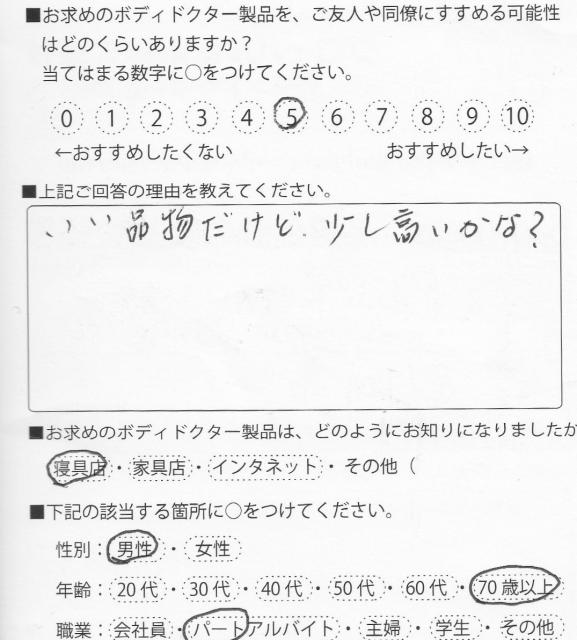 ■お求めのボディドクター製品を、ご友人や同僚にすすめる可能性
はどのくらいありますか？
当てはまる数字に○をつけてください。
0 1 2 3 4 5 6 7 8 9 10
←おすすめしたくない おすすめしたい→
■上記ご回答の理由を教えてください。
いい品物だけど、少し高いかな?
■お求めのボディドクター製品は、どのようにお知りになりましたか
寝具店・家具店・インタネット・その他（
■下記の該当する箇所に○をつけてください。
性別：男性・女性
年齢：20代・30代・40代・50代・60代・70歳以上
職業：会社員・パートアルバイト・主婦・学生・その他